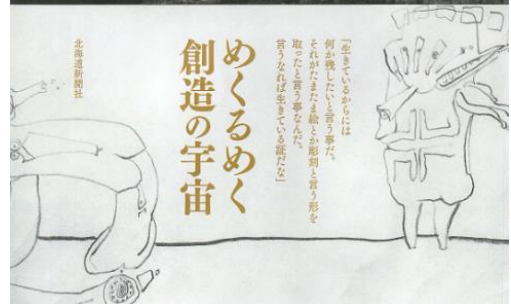 「生きているからには
何か残したいと言う事だ。
それがたまたま絵とか彫刻と言う形を
取ったと言う事なんだ。
言うなれば生きている証だな」
めくるめく
創造の宇宙
北海道新聞社